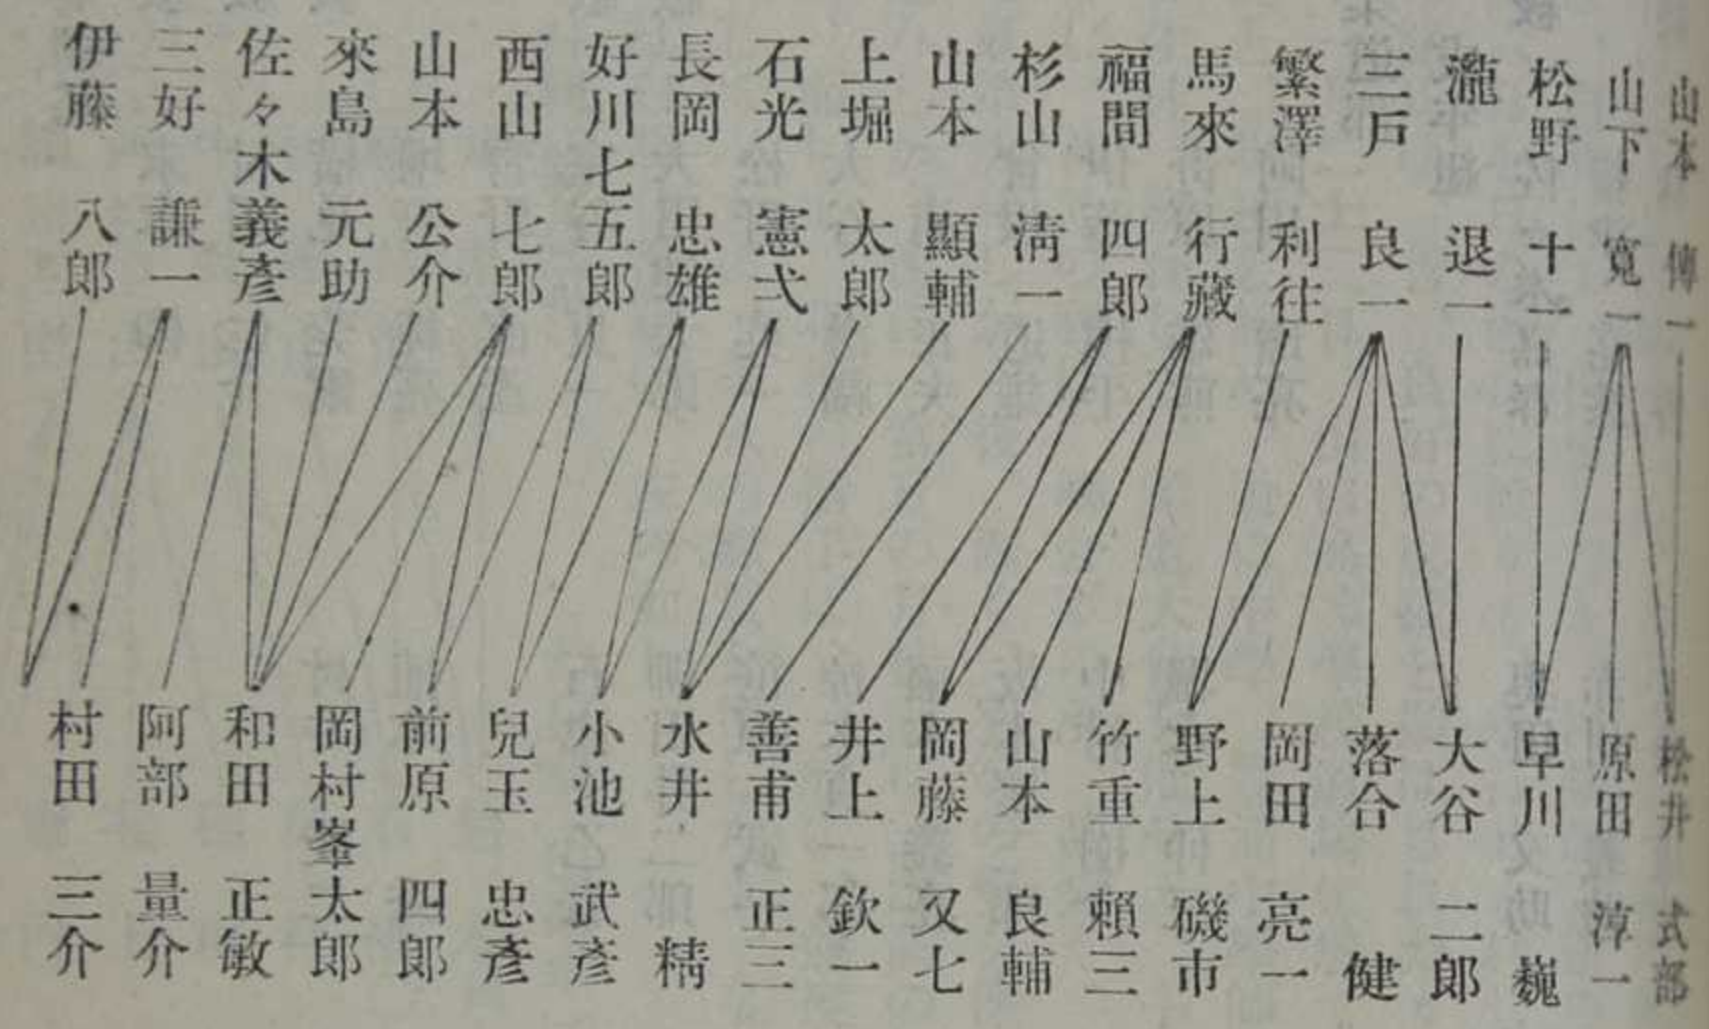 山本傳一
山下寛一
松野十一
瀧退一
三戸良一
繁澤利往
馬來行藏
福間四郎
杉山淸一
山本顯輔
上堀太郎
石光憲弌
長岡忠雄
好川七五郎
西山七郎
山本公介
來島元助
佐々木義彥
三好謙一
伊藤八郎
松井式部
原田淳一
早川巍
大谷二郎
落合健
岡田亮一
野上磯市
竹重賴三
山本良輔
岡藤又七
井上欽一
善甫正三
水井精
小池武彥
兒玉忠彥
前原四郎
岡村峯太郎
和田正敏
阿部量介
村田三介